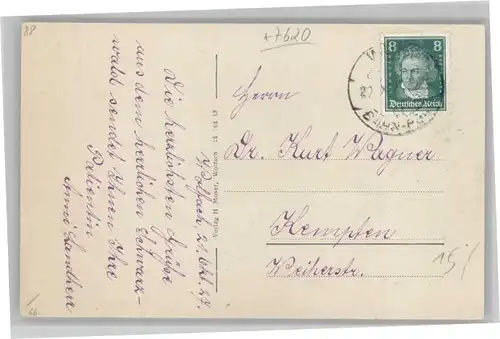 88
+7620
Wolfach, 21. Okt. 27.
Die herzlichsten Grüße
aus dem herrlichen Schwarz-
wald sendet Ihnen Ihre
Patientin
Anni Landherr
Verlag H. Moser, Wolfach
8 8
Deutsches Reich
BAHN-P
Herrn
Dr. Kurt Wagner
Kempten
Weiherstr.
15/